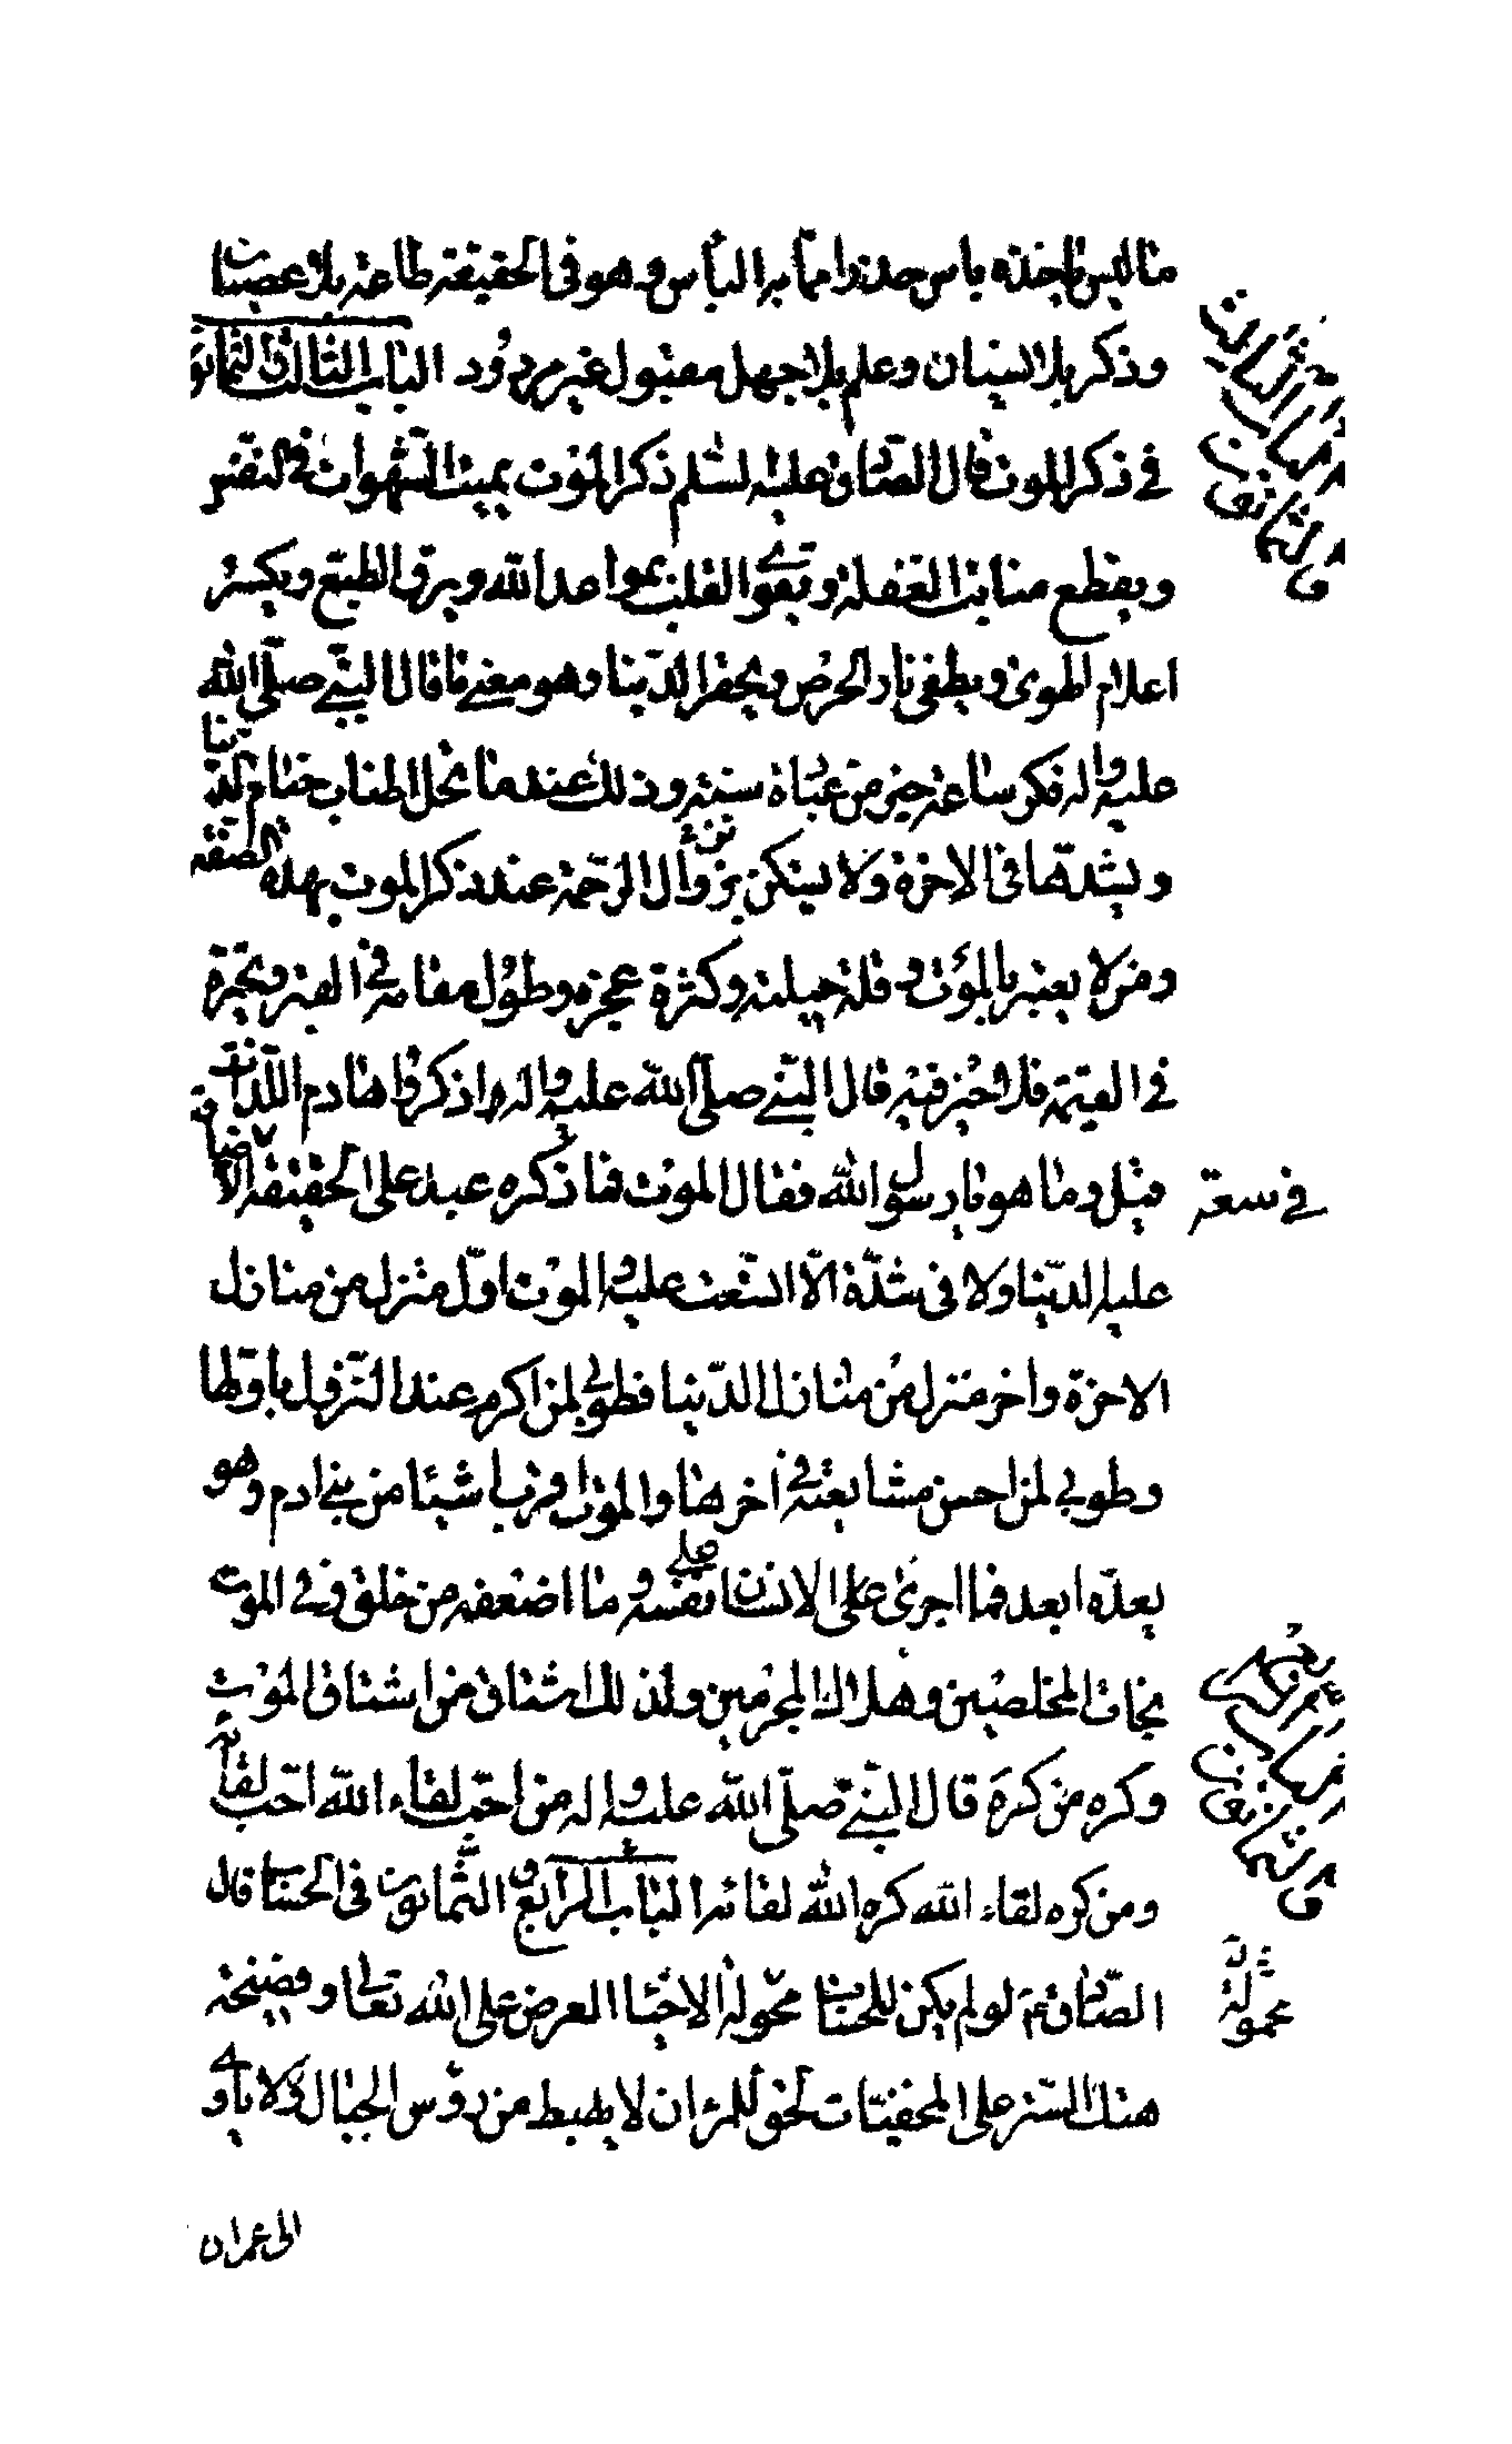 ما ليس باس حذرا مما به الباس وهو فى الحقيقة طاعة بلا عصيان
وذكر بلا نسيان وعلم بلا جهل مقبول غير مردود الباب الثالث والثمانون
فى ذكر الموت قال الصادق عليه السلم ذكر الموت يميت الشهوات فى النفس
ويقطع منابت الغفلة ويقوى القلب بمواعد الله ويرق الطبع ويكسر
اعلام الهوى ويطفى نار الحرص ويحقر الدنيا وهو معنى ما قال النبى صلى الله
عليه واله فكر ساعة خير من عبادة سنة وذلك عندما يحل اطناب خيام الدنيا
ويشدها فى الاخرة ولا يسكن بزوال الرحمة عند ذكر الموت بهذه الصفة
ومن لا يعتبر بالموت وقلة حيلته وكثرة عجزه وطول مقامه فى القبر وتحيره
فى القيمة فلا خير فيه قال النبى صلى الله عليه واله اذكروا هادم اللذات
قيل وما هو يا رسول الله فقال الموت فما ذكره عبد على الحقيقة فى سعة الا ضاقت
عليه الدنيا ولا فى شدة الا اتسعت عليه الموت اول منزل من منازل
الاخرة واخر منزل من منازل الدنيا فطوبى لمن اكرم عند النزول باولها
وطوبى لمن احسن مشايعته فى اخرها والموت اقرب شيئا من بنى ادم وهو
يعده ابعد فما اجرئ على الانسان على نفسه وما اضعفه من خلق وفى الموت
نجاة المخلصين وهلاك المجرمين ولذلك اشتاق من اشتاق الموت
وكره من كره قال النبى صلى الله عليه واله من احب لقاء الله احب لقائه
ومن كره لقاء الله كره الله لقائه الباب الرابع والثمانون فى الحساب قال
الصادق ع لو لم يكن للحساب مهولة الا حياء العرض على الله تعالى وفضيحة
محولة
هتك الستر على المخفيات لحق للمرء ان لا يهبط من رؤس الجبال ولا ياوى
الى عمران